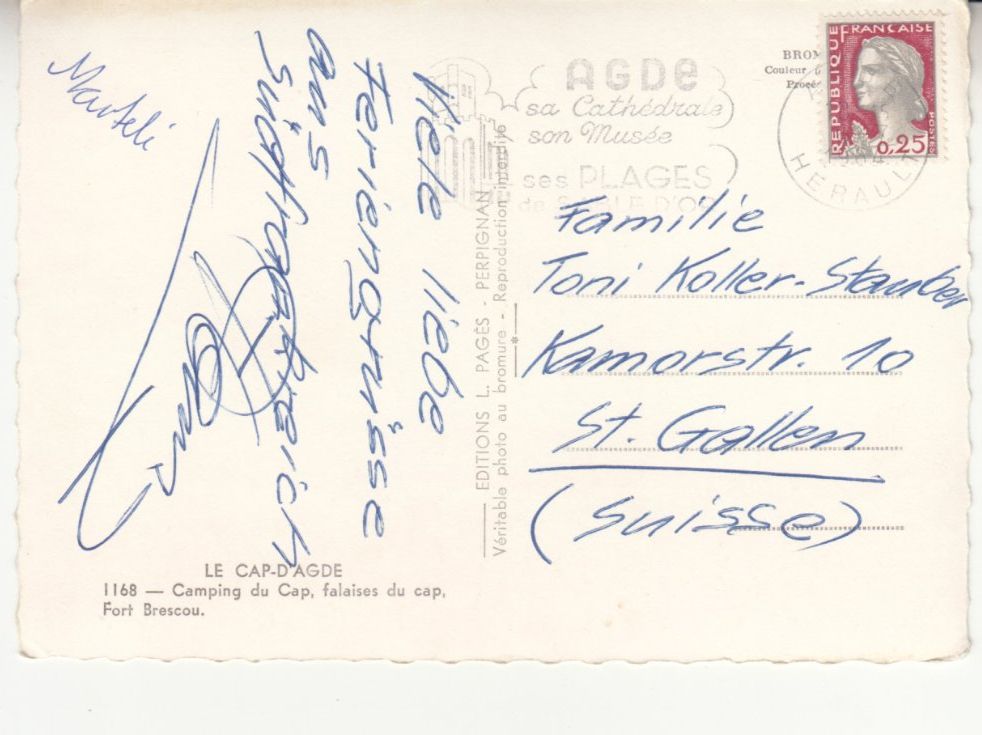 Marteli
Viele liebe
Feriengrüsse
aus
Südfrankreich
LE CAP-D'AGDE
1168 — Camping du Cap, falaises du cap,
Fort Brescou.
EDITIONS L. PAGÈS - PERPIGNAN
Véritable photo au bromure - Reproduction interdite
AGDE
sa Cathédrale
son Musée
ses PLAGES
de SABLE D'OR
BROM
Couleur
Procéd
RÉPUBLIQUE FRANÇAISE
POSTES
0,25
HERAULT
Familie
Toni Koller-Stauber
Kamorstr. 10
St. Gallen
(Suisse)